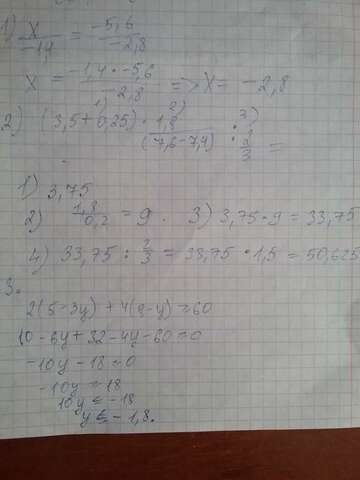 1) x/-1,4 = -5,6/-2,8
x = -1,4 · -5,6/-2,8 => x = -2,8
1) 2) 3)
2) (3,5+0,25) · 1,8/(7,6-7,4) : 2/3 =
1) 3,75
2) 1,8/0,2 = 9. 3) 3,75·9 = 33,75
4) 33,75 : 2/3 = 33,75 · 1,5 = 50,625
3.
2(5-3y)+4(8-y) ≥ 60
10-6y+32-4y-60 ≥ 0
-10y-18 ≥ 0
-10y ≥ 18
10y ≤ -18
y ≤ -1,8.